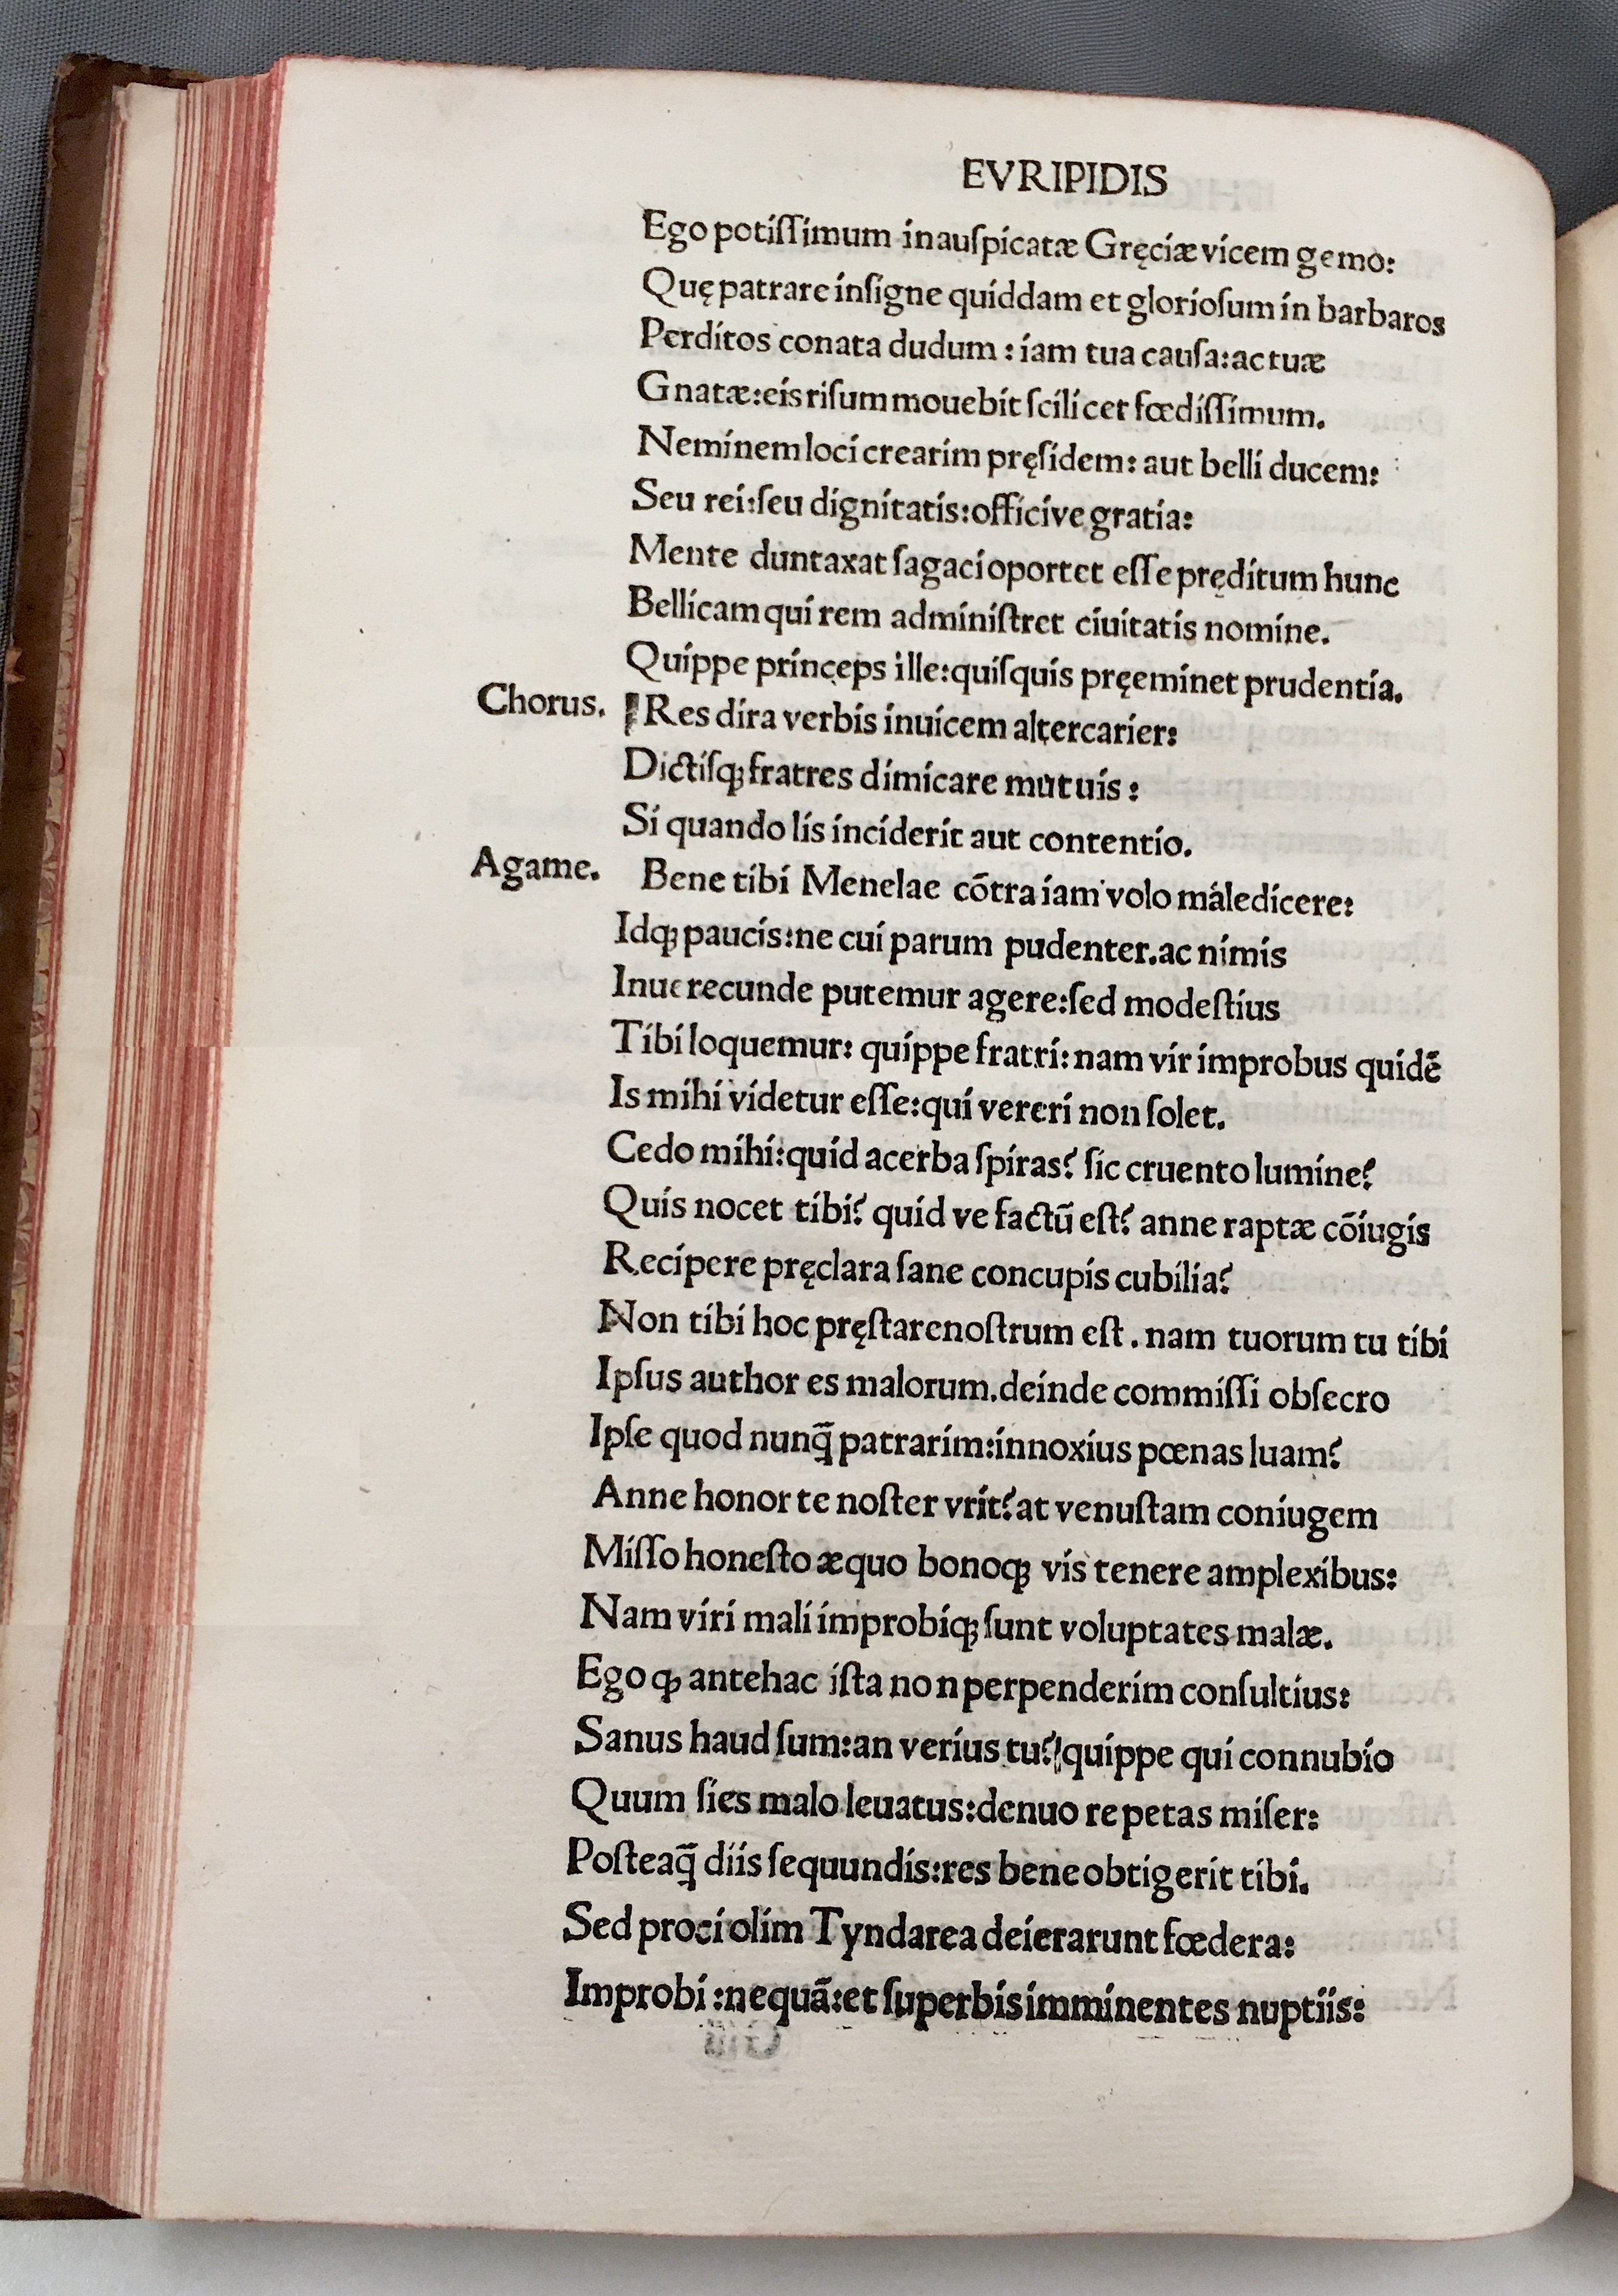 EVRIPIDIS
Ego potiſſimum inauſpicatæ Gręciæ vicem gemo:
Quę patrare inſigne quiddam et glorioſum in barbaros
Perditos conata dudum : iam tua cauſa: ac tuæ
Gnatæ: eis riſum mouebit ſcilicet fœdiſſimum.
Neminem loci crearim pręſidem: aut belli ducem:
Seu rei: ſeu dignitatis: officive gratia:
Mente duntaxat ſagaci oportet eſſe pręditum hunc
Bellicam qui rem adminiſtret ciuitatis nomine.
Quippe princeps ille: quiſquis pręeminet prudentia.
Chorus. Res dira verbis inuicem altercarier:
Dictiſqꝫ fratres dimicare mutuis :
Si quando lis inciderit aut contentio.
Agame. Bene tibi Menelae cōtra iam volo maledicere:
Idqꝫ paucis: ne cui parum pudenter. ac nimis
Inuerecunde putemur agere: ſed modeſtius
Tibi loquemur: quippe fratri: nam vir improbus quidē
Is mihi videtur eſſe: qui vereri non ſolet.
Cedo mihi: quid acerba ſpiras? ſic cruento lumine?
Quis nocet tibi? quid ve factū eſt? anne raptæ cōiugis
Recipere pręclara ſane concupis cubilia?
Non tibi hoc pręſtare noſtrum eſt . nam tuorum tu tibi
Ipſus author es malorum. deinde commiſſi obſecro
Ipſe quod nunq̄ patrarim: innoxius pœnas luam?
Anne honor te noſter vrit? at venuſtam coniugem
Miſſo honeſto æquo bonoqꝫ vis tenere amplexibus:
Nam viri mali improbiqꝫ ſunt voluptates malæ.
Ego qꝫ antehac iſta non perpenderim conſultius:
Sanus haud ſum: an verius tu? quippe qui connubio
Quum ſies malo leuatus: denuo repetas miſer:
Poſteaq̄ diis ſequundis: res bene obtigerit tibi.
Sed proci olim Tyndarea deierarunt fœdera:
Improbi : nequā: et ſuperbis imminentes nuptiis: